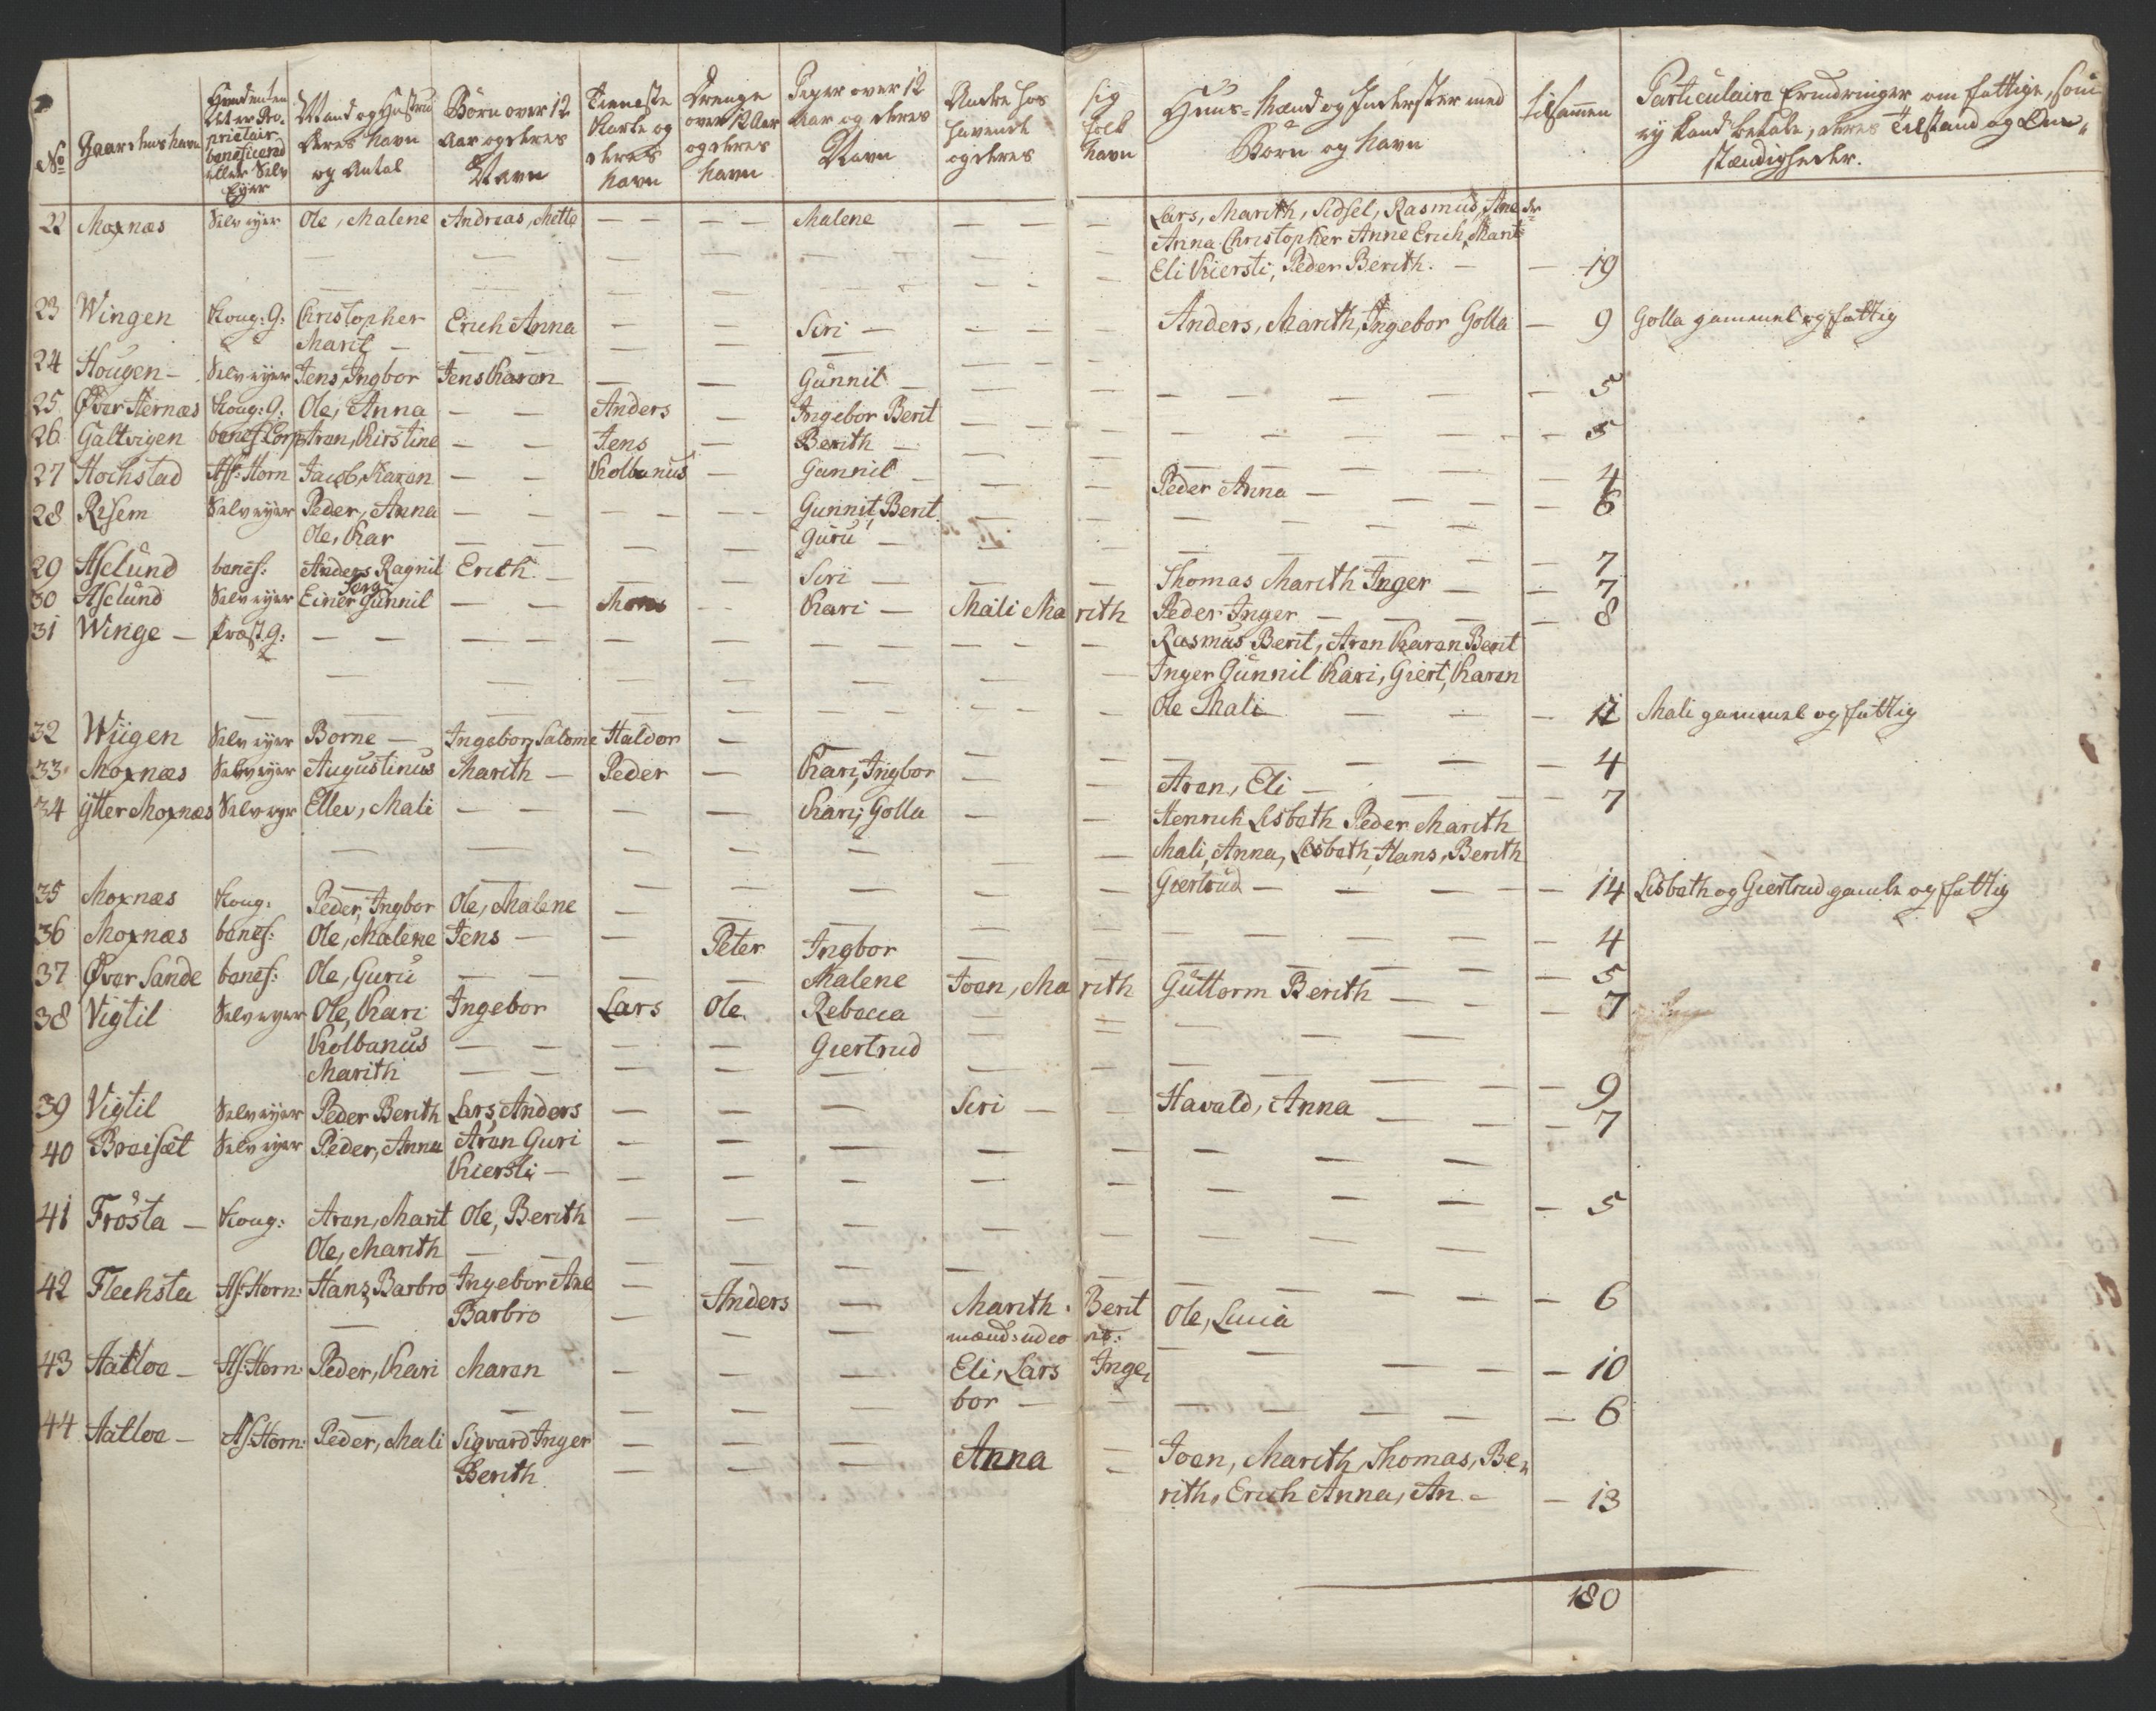 No
Gaardens Navn
Hvad enten det er Proprietair, beneficered eller Selv Eyer
Mand og Hustru deres Navn og Antal
Börn over 12 Aar og deres Navn
Tieneste Karle og deres Navn
Drenge over 12 Aar og deres Navn
Piger over 12 Aar og deres Navn
Andre hos sig havende Folk og deres Navn
Huus-Mænd og Inderster med Börn og Navn
tilsammen
Particulaire Erindringer om fattige, som ey kand betale, deres Tilstand og Omstændigheder.
22 Moxnæs Selveyer Ole, Malene Andreas, Mette — — — — Malene — — — Lars, Marith, Sidsel, Rasmus, Ane
Anna Christopher Anne Erich, Marit
Eli Kiersti, Peder Berith. — — 19
23 Wingen Kong: G: Christopher Erich Anna — — Siri — — — Anders, Marith, Ingebor Golla — 9 Golla gammel og fattig
Marit —
24 Hougen — Selveyer Jens, Ingbor Jens Karen — — Gunnil — — — 5
25 Øver Hernæs Kong: G: Ole, Anna — — Anders — Ingebor Berit — — — 5
26 Galtvigen benef Corp: Aren, Kirstine — — Jens — Berith —
27 Hochstad Ass: Horn Jacob, Karen — — Kolbanus — Gunnil — — Peder Anna — — 4
28 Risem Selveyer Peder, Anna — — — — Gunnit, Berit — — — 6
Ole, Kar — — Guru — — 7
29 Aselund benef: Anders Ragnil Erich — — — Siri — — — Thomas Marith Inger — — 7
30 Aselund Selveyer Einer Gunnil — — Mons — Kari — Mali Marith Peder Inger — — 8
31 Winge — Præst. G: — — — — — — — — — — Rasmus Berit, Aren Karen Berit
Inger Gunnil Kari, Giert, Karen
Ole Mali — — — 12 Mali gammel og fattig
32 Wiigen Selveyer Borne — Ingebor, Salome Haldor — — — — — 4
33 Moxnæs Selveyer Augustinus Marith — Peder — Kari, Ingbor — — Aren, Eli — — 7
34 ytter Moxnæs Selveyer Ellev, Mali — — — — Kari, Golla — — Henrich Lisbeth Peder Marith
Mali, Anna, Lisbeth, Hans, Berith
Giertrud — — — 14 Lisbeth og Giertrud gamle og fattig
35 Moxnæs Kong: Peder, Ingbor Ole, Malene — — — — — — 4
36 Moxnæs benef: Ole, Malene Jens — — Peter Ingbor — — — 5
37 Øver Sande benef: Ole, Guru — — — — Malene Joen, Marith Guttorm Berith — — 7
38 Vigtil Selveyer Ole, Kari Ingebor Lars Ole Rebecca — —
Kolbanus — — — — Giertrud
Marith — — — — — — — — 9
39 Vigtil Selveyer Peder Berith Lars, Anders — — — Siri — — Havald, Anna — — 7
40 Braiset Selveyer Peder, Anna Aren Guri — — — — —
Kiersti — — — — — — — 5
41 Frösta — Kong: Aren, Marit Ole, Berith — — — — —
Ole, Marith — — — — — — — 6
42 Flechsta As: Horn: Hans, Barbro Ingebor Ane — Anders — Marith. Berit Ole, Lucia
— Barbro — — —
— 10
43 Aatloe — As: Horn: Peder, Kari Maren — — — Eli, Lars Inge,
bor — — — — 6
44 Aatloe — As: Horn: Peder, Mali Sigvard Inger — — — Anna — Joen, Marith, Thomas, Be,
Berith — — — — rith, Erich Anna, An. — — 13
180